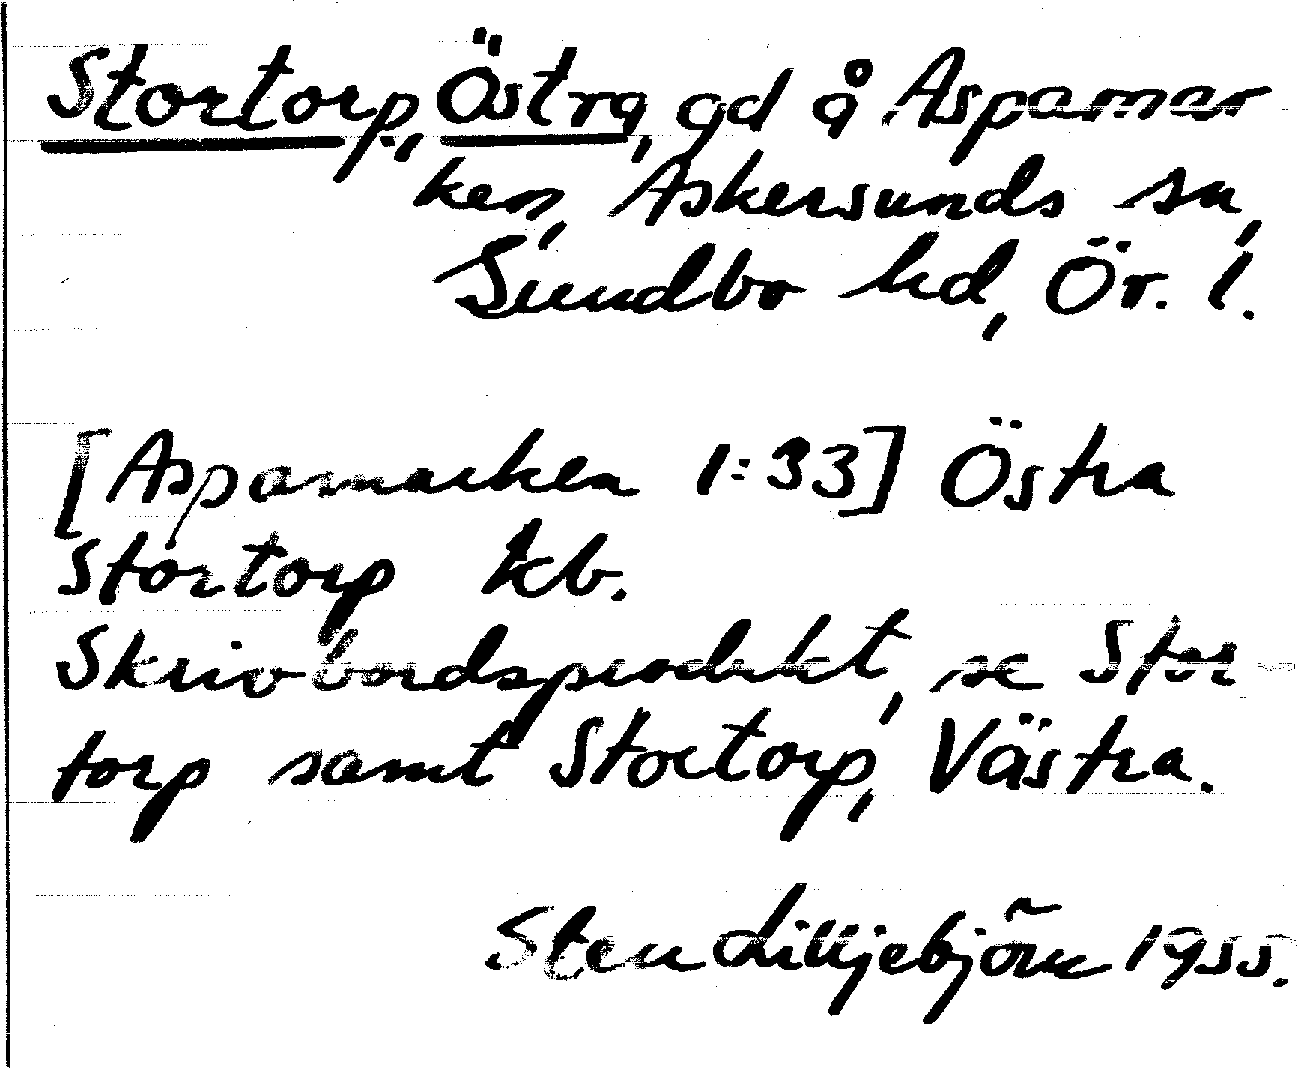 Stortorp, Östra, gd å Aspamar
ken, Askersunds sn,
Sundbo hd, Ör. l.
[Aspamarken 1:33] Östra
Stortorp kb.
Skrivbordsprodukt, se Stor-
torp samt Stortorp, Västra.
Sten Lilljebjörn 1955.